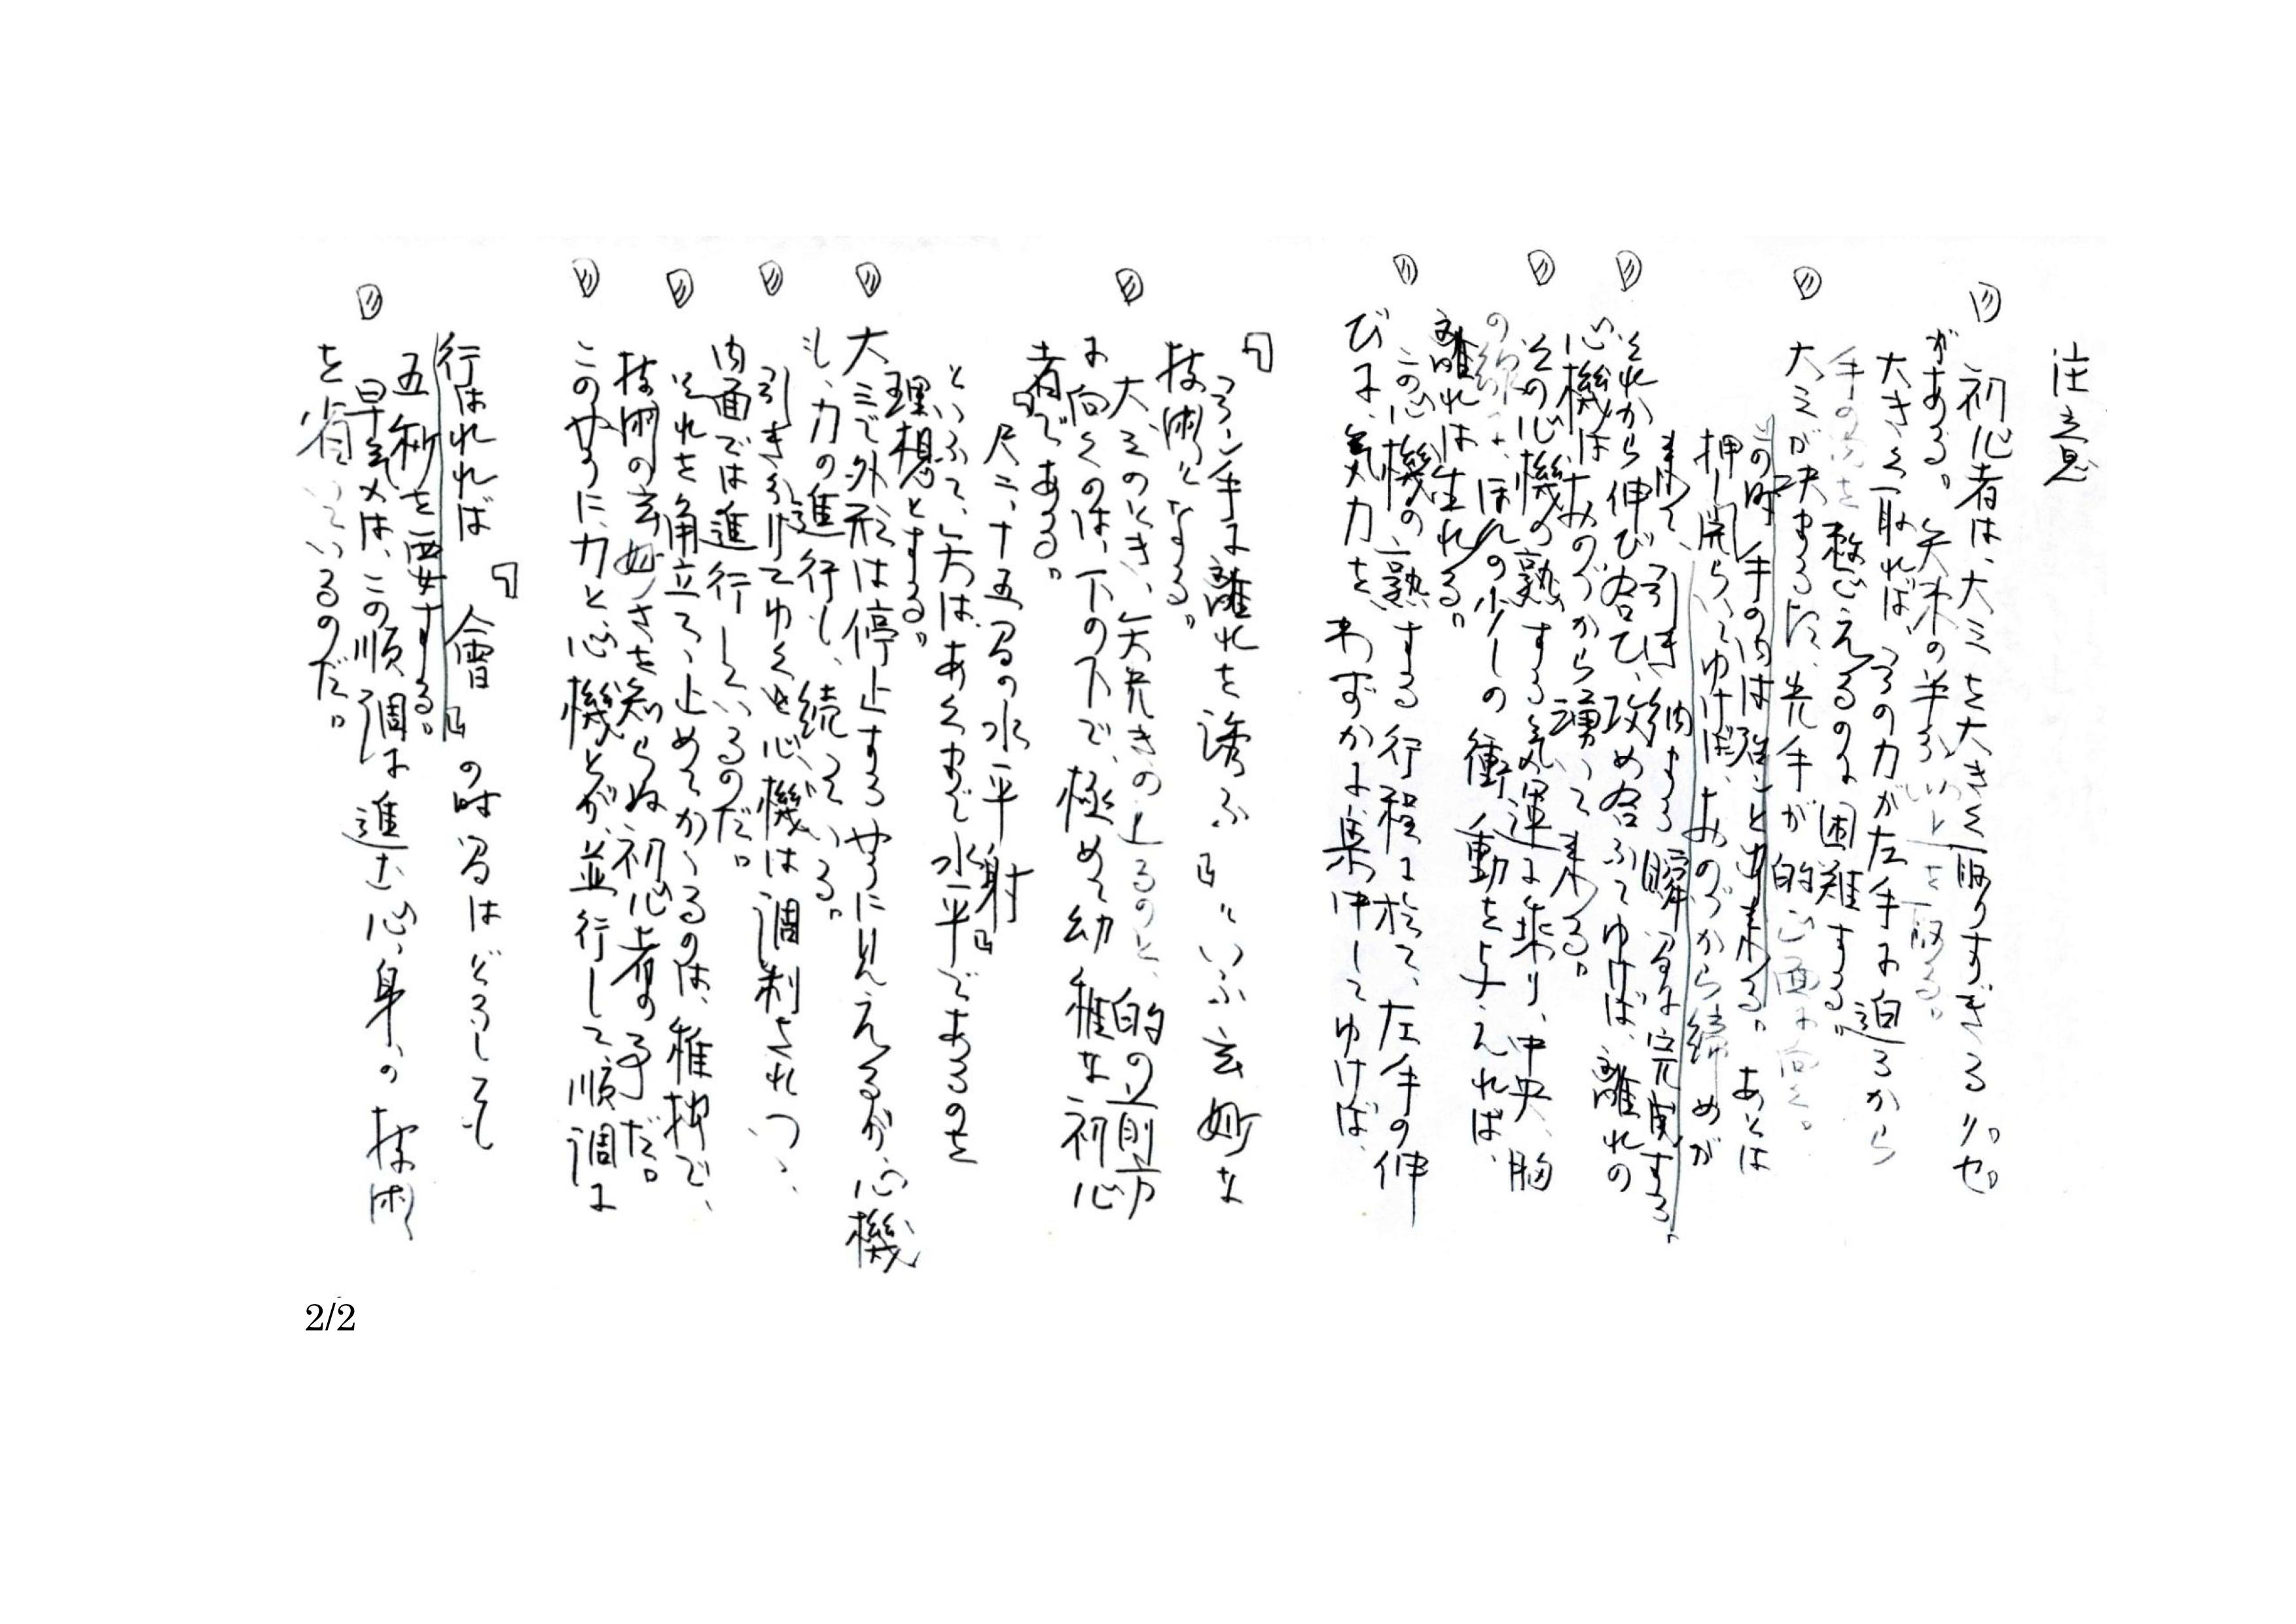 注意
初心者は、大三を大きく取りすぎるクセ
がある。矢束の半分以上を取る。
大きく取れば、弓の力が左手に迫るから
手の内を整えるのに困難する。
大三が決まると、先手が的正面に向く。
この時、手の内は殆ど出来る。あとは
押し開らいてゆけば、おのづから締めが
来て、引き納まる瞬間に完成する。
それから伸び合ひ、攻め合ふてゆけば、離れの
心機はおのづから湧いて来る。
その心機の熟する気運に乗り、中央、胸
の線に、ほんの少しの衝動を与えれば、
離れは生れる。
この心機の熟する行程に於て、左手の伸
びに、気力を、わずかに集中してゆけば、
『弓手に離れを誘ふ』といふ玄妙な
技術となる。
大三のとき、矢先きの上るのと、的の前方
に向くのは、下の下で、極めて幼稚な初心
者である。
『尺二、十五間の水平射』
といふて、矢はあくまで水平であるのを
理想とする。
大三で外形は停止するやうに見えるが、心機
も、力の進行も、続いている。
引き分けてゆくと心機は調制されつゝ、
内面では進行しているのだ。
それを角立て、止めてかゝるのは、稚拙で、
技術の玄妙さを知らぬ初心者の事だ。
このやうに、力と心機とが、並行して順調に
行はれれば『會』の時間はどうしても
五秒を要する。
早気は、この順調に進む心、身、の技術
を省いているのだ。
2/2